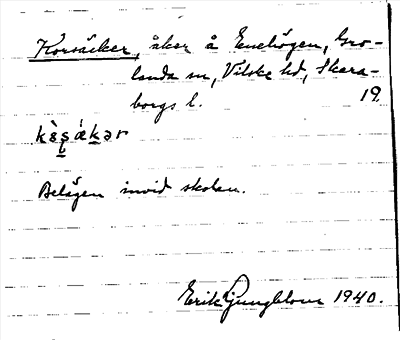 Korsåcker, åker å Enehögen, Gro-
landa sn, Vilske hd, Skara-
borgs l. 19.
Belägen invid skolan.
Erik Ljungblom 1940.